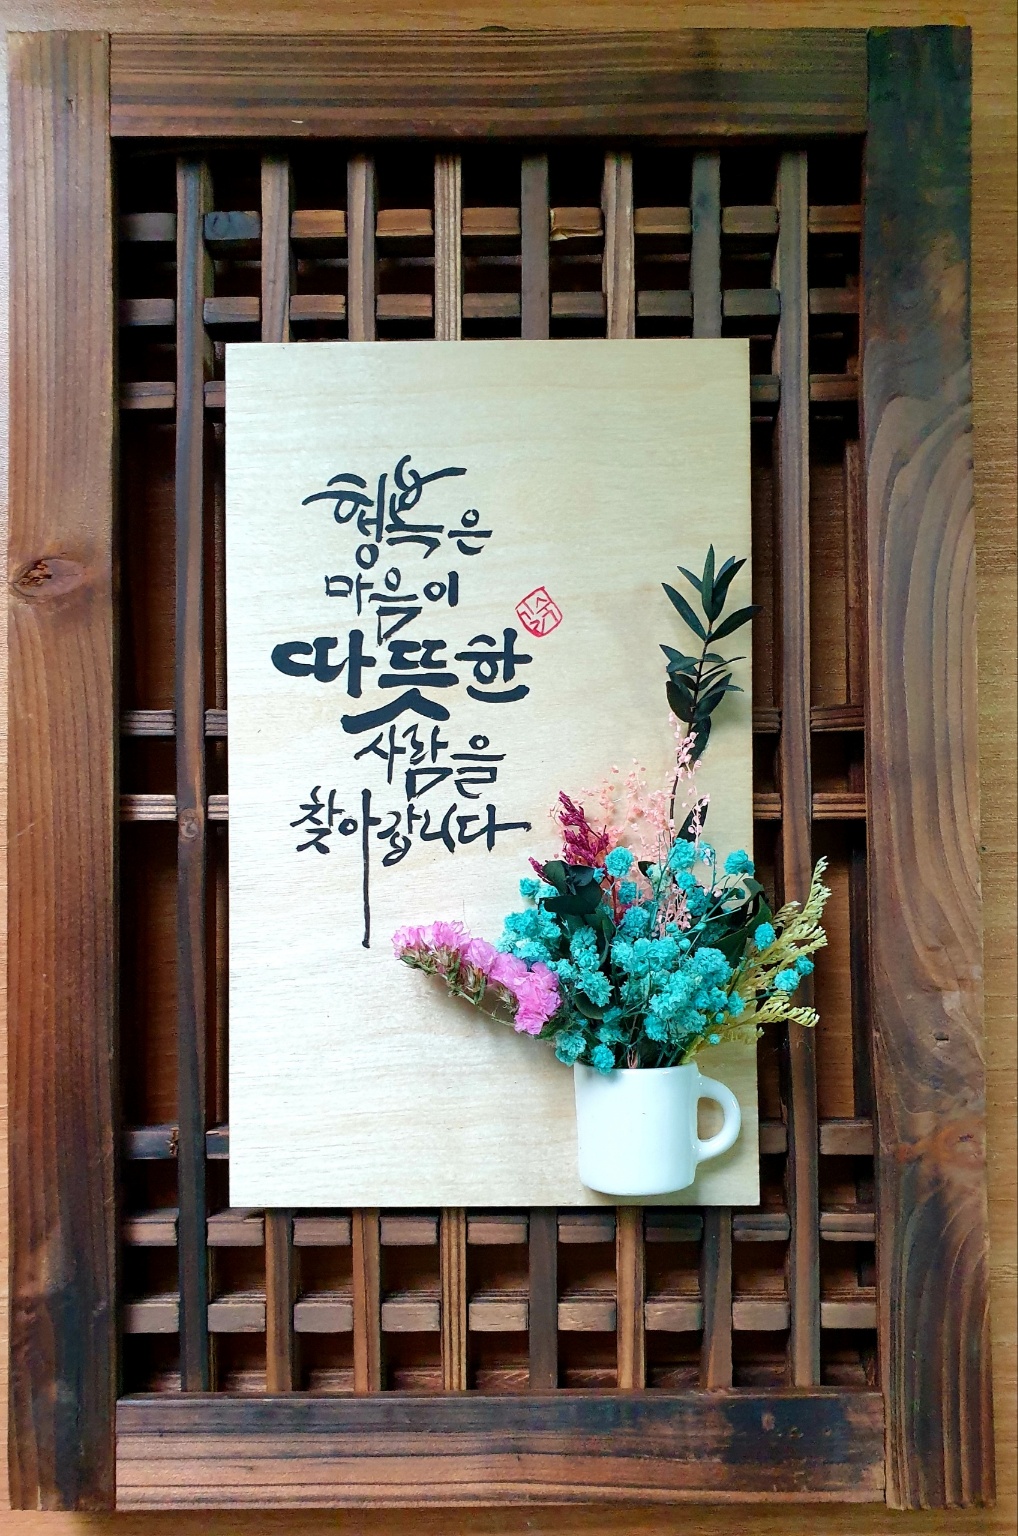 행복은
마음이
따뜻한
사람을
찾아갑니다